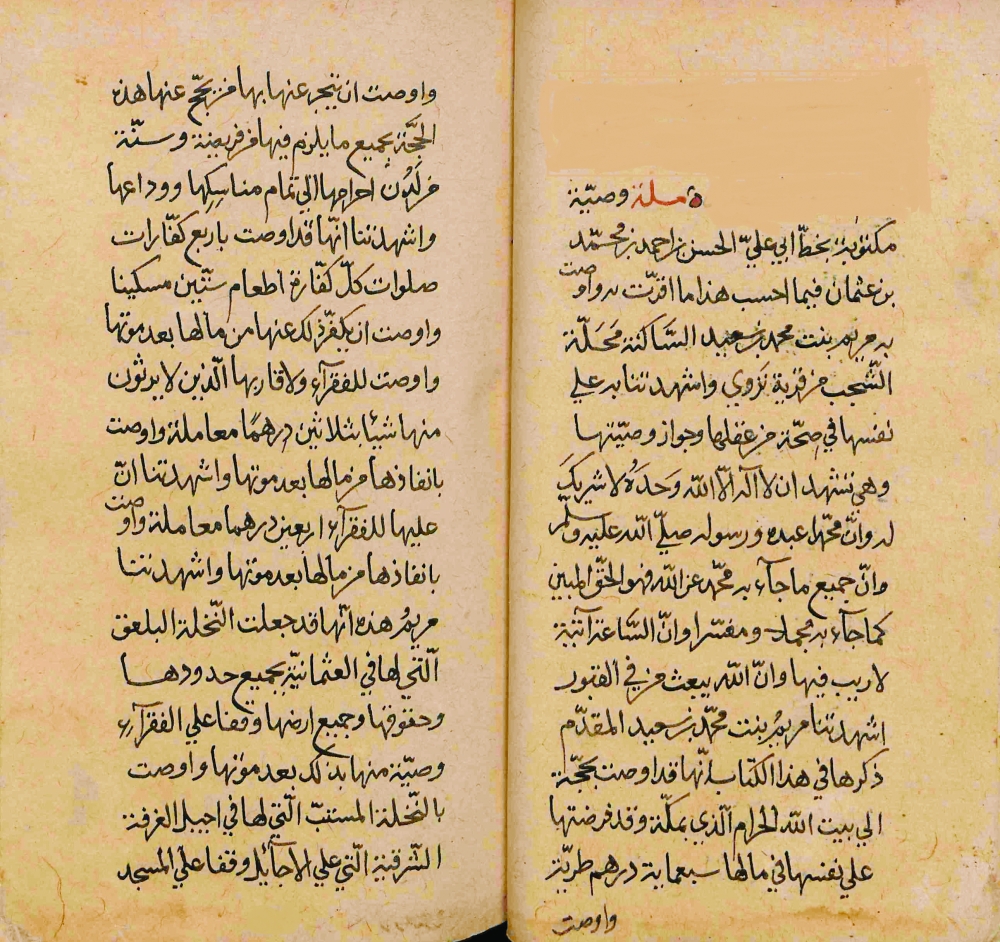 مسئلة وصيّة
مكتوبة بخطّ ابي عليّ الحسن بن احمد بن محمّد
بن عثمان فيما احسب هذا ما اقرّت به واوصت
به مريم بنت محمد بن سعيد السّاكنة مَحَلّة
الشّجب من قرية نزوي واشهدتنا به علي
نفسها في صحّة من عقلها وجواز وصيّتها
وهي تشهد ان لا اله الّا الله وَحدَهُ لا شريكَ
له وانّ محمّدا عبده ورسوله صلّي الله عليه وسلم
وانّ جميع ما جآء به محمّد عن الله فهو الحقّ المبين
كما جآء به مجملا ومفسّرا وانّ السّاعة آتية
لا ريب فيها وانّ الله يبعث من في القبور
اشهدتنا مريمُ بنت محمّد بن سعيد المقدّم
ذكرها في هذا الكتاب انّها قد اوصت بحجّة
الي بيت الله الحرام الّذي بمكّة وقد فرضتها
علي نفسها في مالها سبعماية درهم طريّة
واوصت
واوصت ان يتجر عنها بها من يحجّ عنها هذه
الحجّة بجميع ما يلزم فيها من فريضة وسنّة
من لَدُن احرامها الي تمام مناسِكِها ووداعها
واشهدتنا انّها قد اوصت باربع كفّارات
صلوات كلّ كفّارة اطعام ستّين مسكينا
واوصت ان يكفّر ذلك عنها من مالها بعد موتها
واوصت للفقرآء ولاقاربها الّذين لا يرثون
منها شيئا بثلاثين درهمًا معاملة واوصت
بانفاذها من مالها بعد موتها واشهدتنا انّ
عليها للفقرآء اربعين درهما معاملة واوصت
بانفاذها من مالها بعد موتها واشهدتنا
مريمُ هذه انّها قد جعلت النّخلة البلعق
الّتي لها في العثمانيّة بجميع حدودها
وحقوقها وجميع ارضها وقفا علي الفقرآءِ
وصيّة منها بذلك بعد موتها واوصت
بالنّخلة المستبّ الّتي لها في اجيل الغرفة
الشّرقية الّتي علي الاجآئل وقفا علي المسجد